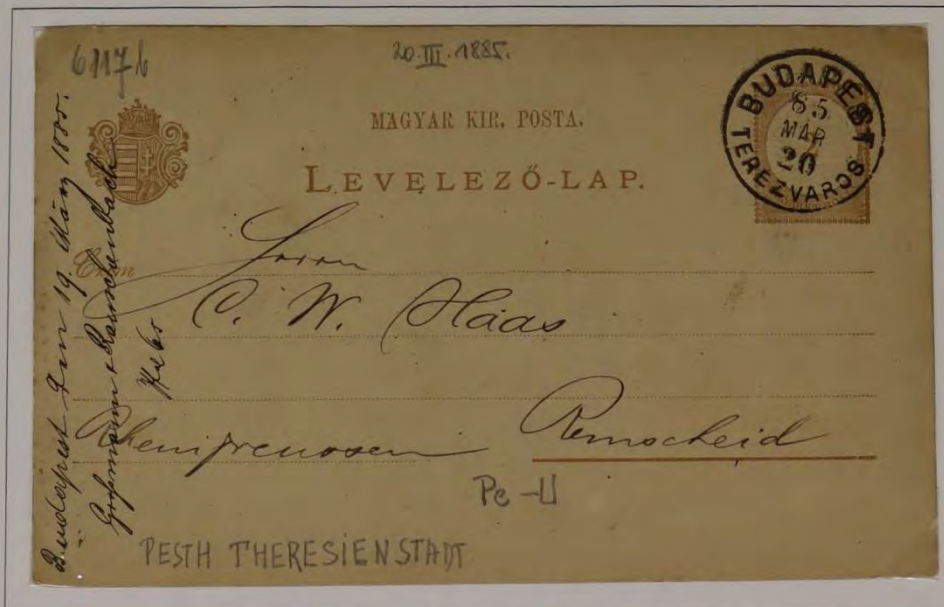 6117b
20.III.1885.
MAGYAR KIR. POSTA.
LEVELEZŐ-LAP.
BUDAPEST
85
MÁR
20
TERÉZVÁROS
Herrn
C. W. Haas
Rheinpreussen Remscheid
Pe-U
PESTH THERESIENSTADT
Budapest den 19. März 1885.
Grossmann & Rauschenbach